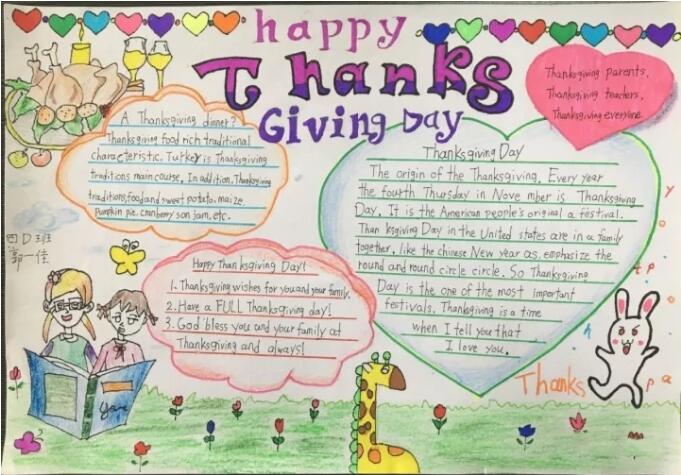 happy
Thanks
Giving Day
Thanksgiving parents,
Thanksgiving teachers,
Thanksgiving everyone
A Thanksgiving dinner?
Thanksgiving food rich traditional
characteristic. Turkey is Thanksgiving
traditions main course. In addition, Thanksgiving
traditions food and sweet potato, maize,
Pumpkin pie, cranberry son jam, etc.
Thanksgiving Day
The origin of the Thanksgiving. Every year
the fourth Thursday in Nove mber is Thanksgiving
Day. It is the American people's original a festival.
Than ksgiving Day in the United states are in a family
together, like the chinese New year as, emphasize the
round and round circle circle. So Thanksgiving
Day is the one of the most important
festivals. Thanksgiving is a time
when I tell you that
I love you.
四D班
郭一佳
Happy Thanksgiving Day!
1. Thanksgiving wishes for you and your family.
2. Have a FULL Thanksgiving day!
3. God bless you and your family at
Thanksgiving and always!
Thanks